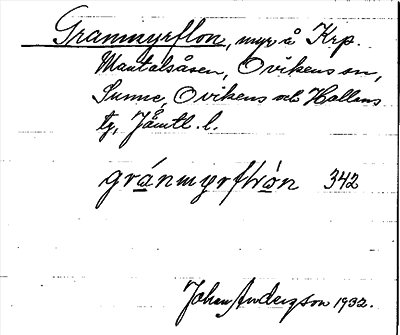 Granmyrflon, myr å Krp.
Mantalsåsen, Ovikens sn,
Sunne, Ovikens och Hallens
tg, Jämtl. l.
gránmyrflòn 342
Johan Anderzson 1932.